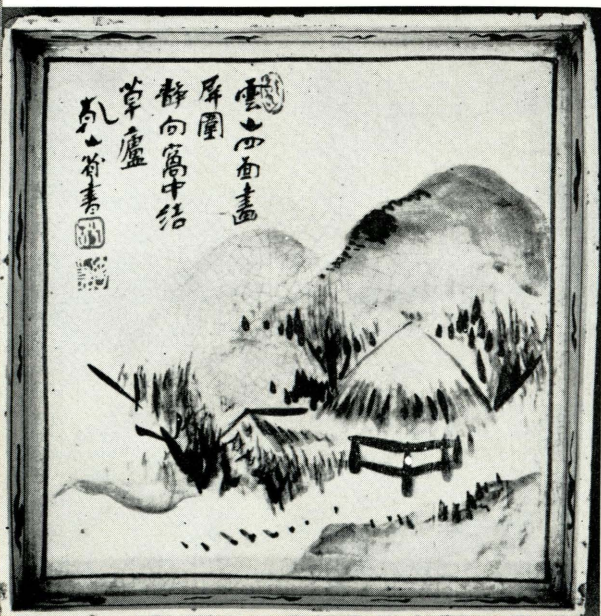 雲山四面畫
屏圍
静向窩中结
草廬
乾山省書